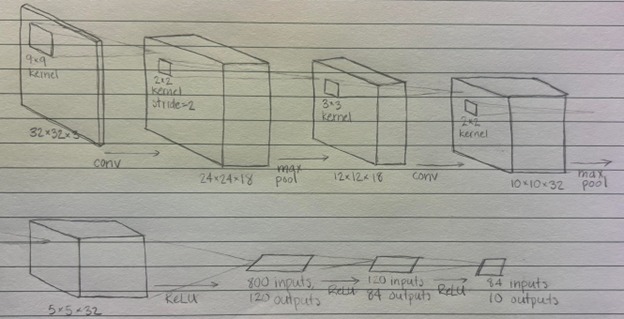 9×9
kernel
32×32×3
conv
2×2
kernel
stride=2
24×24×18
max
pool
3×3
kernel
12×12×18
conv
2×2
kernel
10×10×32
max
pool
5×5×32
ReLU
800 inputs,
120 outputs
ReLU
120 inputs
84 outputs
ReLU
84 inputs
10 outputs